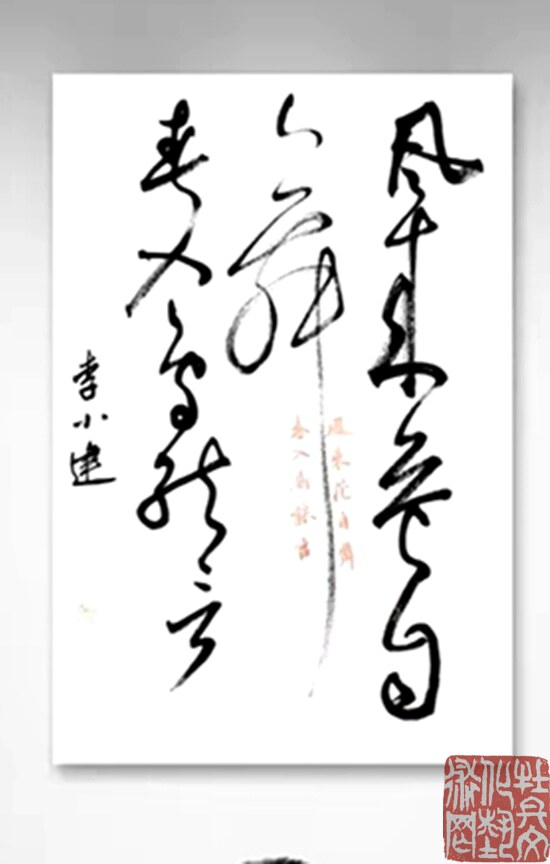 风来花自
舞
春入鸟能言
李小建
風来花自舞
春入鳥能言